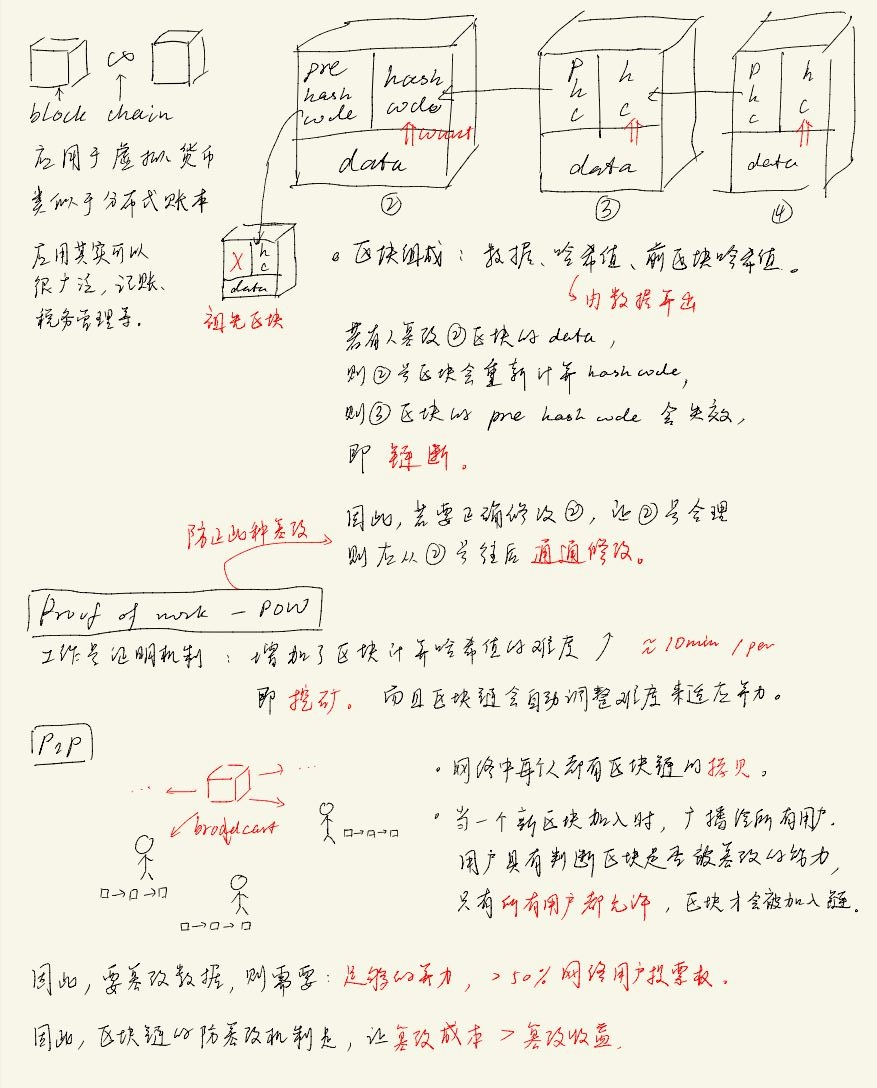 block chain
应用于虚拟货币
类似于分布式账本
应用其实可以
很广泛，记账、
税务管理等.
pre hash code
hash code
count
data
②
p h c
h c
data
③
p h c
h c
data
④
X
h c
data
祖先区块
• 区块组成：数据、哈希值、前区块哈希值。
由数据算出
若有人篡改②区块的data，
则②号区块会重新计算hashcode，
则③区块的 pre hash code 会失效，
即 链断。
因此，若要正确修改②，让②号合理
则应从②号往后 通通修改。
防止此种篡改
Proof of work — POW
工作量证明机制：增加了区块计算哈希值的难度↑ ≈10min / per
即 挖矿。而且区块链会自动调整难度来适应算力。
P2P
... ...
broadcast
• 网络中每个人都有区块链的拷贝。
• 当一个新区块加入时，广播给所有用户.
用户具有判断区块是否被篡改的能力，
只有所有用户都允许，区块才会被加入链.
因此，要篡改数据，则需要：足够的算力，>50%网络用户投票权.
因此，区块链的防篡改机制是，让篡改成本>篡改收益.